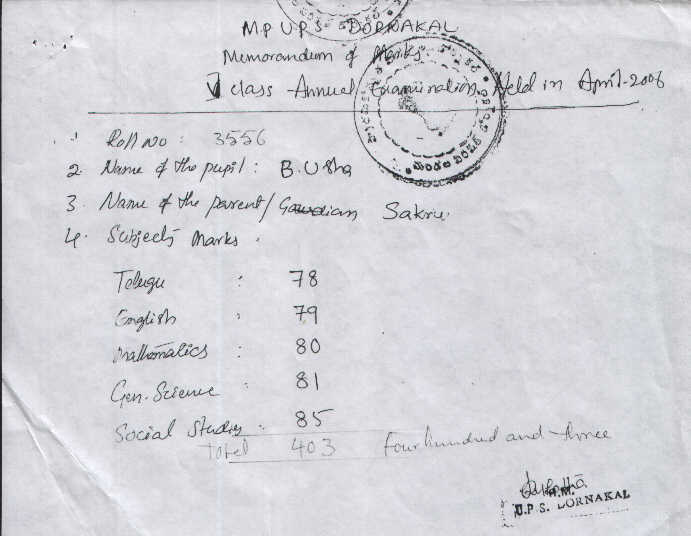 M P U P S DORNAKAL
Memorandum of Marks
V class Annual Examination Held in April-2006
1 Roll No : 3556
2. Name of the pupil : B. Usha
3. Name of the parent / Gaurdian Sakru.
4. Subjects Marks .
Telugu : 78
English : 79
Mathematics : 80
Gen. Science : 81
Social Studies : 85
Total 403 Four hundred and three
H.M.
U.P.S. DORNAKAL